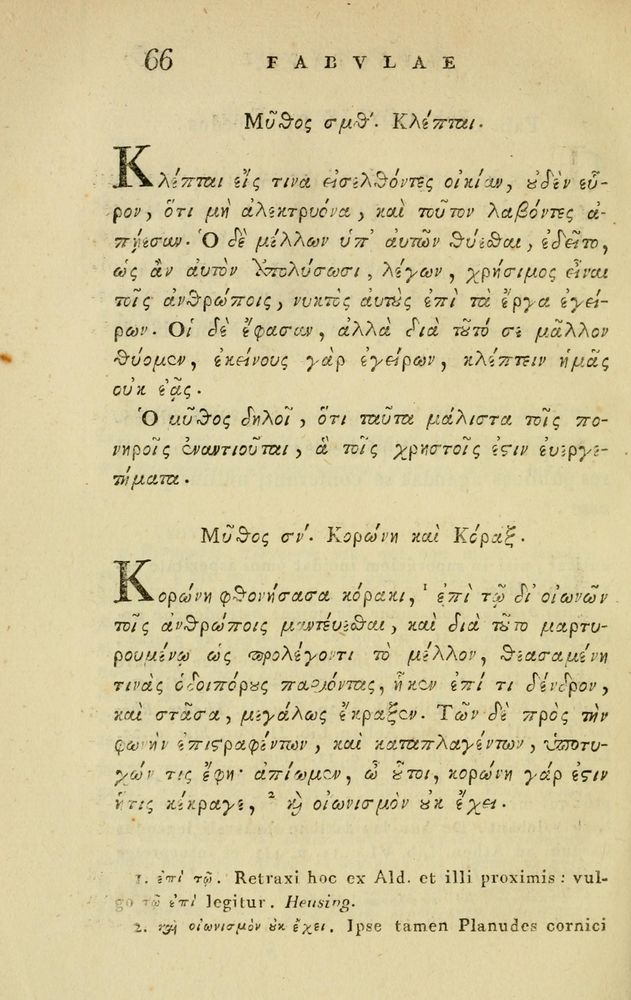 66 FABVLAE
Μῦθος σμθʹ. Κλέπται.
Κλέπται εἴς τινα εἰσελθόντες οἰκίαν, ȣ̓δὲν εὗ-
ρον, ὅτι μὴ ἀλεκτρυόνα, καὶ τοῦτον λαβόντες ἀ-
πῄεσαν. Ὁ δὲ μέλλων ὑπ' αὐτῶν θύεσθαι, ἐδεῖτο,
ὡς ἂν αὐτὸν ὑπολύσωσι, λέγων, χρήσιμος εἶναι
τοῖς ἀνθρώποις, νυκτὸς αὐτȣ̀ς ἐπὶ τὰ ἔργα ἐγεί-
ρων. Οἱ δὲ ἔφασαν, ἀλλὰ διὰ τȣ͂τό σε μᾶλλον
θύομεν, ἐκείνους γὰρ ἐγείρων, κλέπτειν ἡμᾶς
οὐκ ἐᾷς.
Ὁ μῦθος δηλοῖ, ὅτι ταῦτα μάλιστα τοῖς πο-
νηροῖς ἐναντιοῦται, ἃ τοῖς χρηστοῖς ἐϛιν ἐυεργε-
τήματα.
Μῦθος σνʹ. Κορώνη καὶ Κόραξ.
Κορώνη φθονήσασα κόρακι, ¹ ἐπὶ τῷ δι' οἰωνῶν
τοῖς ἀνθρώποις μαντεύεσθαι, καὶ διὰ τȣ͂το μαρτυ-
ρουμένῳ ὡς προλέγοντι τὸ μέλλον, θεασαμένη
τινὰς ὁδοιπόρȣς παριόντας, ἧκεν ἐπί τι δένδρον,
καὶ στᾶσα, μεγάλως ἔκραξεν. Τῶν δὲ πρὸς τὴν
φωνὴν ἐπιϛραφέντων, καὶ καταπλαγέντων, ὑποτυ-
χών τις ἔφη· ἀπίωμεν, ὦ ȣ̔͂τοι, κορώνη γάρ ἐϛιν
ἥτις κέκραγε, ² ϗ οἰωνισμὸν ȣ̓κ ἔχει.
1. ἐπὶ τῷ. Retraxi hoc ex Ald. et illi proximis: vul-
go τῷ ἐπὶ legitur. Heusing.
2. ϗ οἰωνισμὸν ȣ̓κ ἔχει. Ipse tamen Planudes cornici